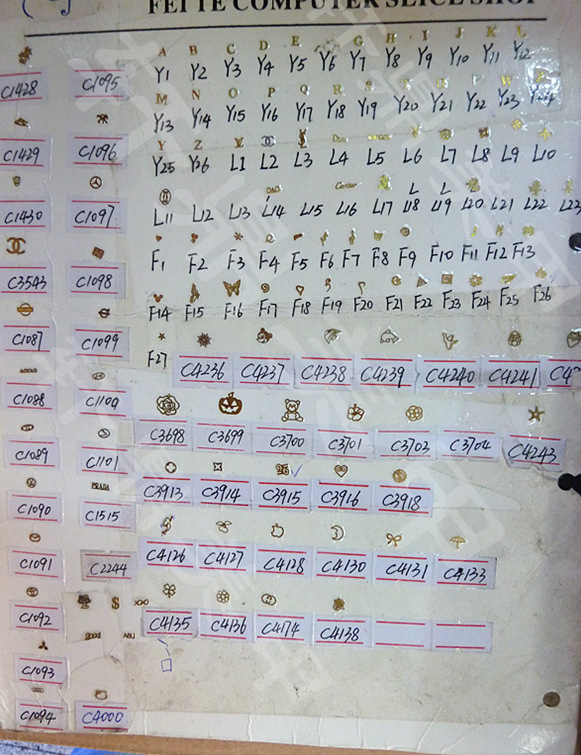 FEITE COMPUTER SLICE SHOP
A B C D E F G H I J K L
Y1 Y2 Y3 Y4 Y5 Y6 Y7 Y8 Y9 Y10 Y11 Y12
M N O P Q R S T U V W
Y13 Y14 Y15 Y16 Y17 Y18 Y19 Y20 Y21 Y22 Y23 Y24
Y Z
Y25 Y26 L1 L2 L3 L4 L5 L6 L7 L8 L9 L10
L11 L12 L13 L14 L15 L16 L17 L18 L19 L20 L21 L22 L23
F1 F2 F3 F4 F5 F6 F7 F8 F9 F10 F11 F12 F13
F14 F15 F16 F17 F18 F19 F20 F21 F22 F23 F24 F25 F26
F27 C4236 C4237 C4238 C4239 C4240 C4241
C3698 C3699 C3700 C3701 C3703 C3704 C4243
C3913 C3914 C3915 C3916 C3918
C4126 C4127 C4128 C4130 C4131 C4133
C4135 C4136 C4174 C4138
C1428 C1095
C1429 C1096
C1430 C1097
C3543 C1098
C1087 C1099
C1088 C1100
C1089 C1101
PRADA
C1090 C1515
C1091 C2244
C1092
C1093
C1094 C4000